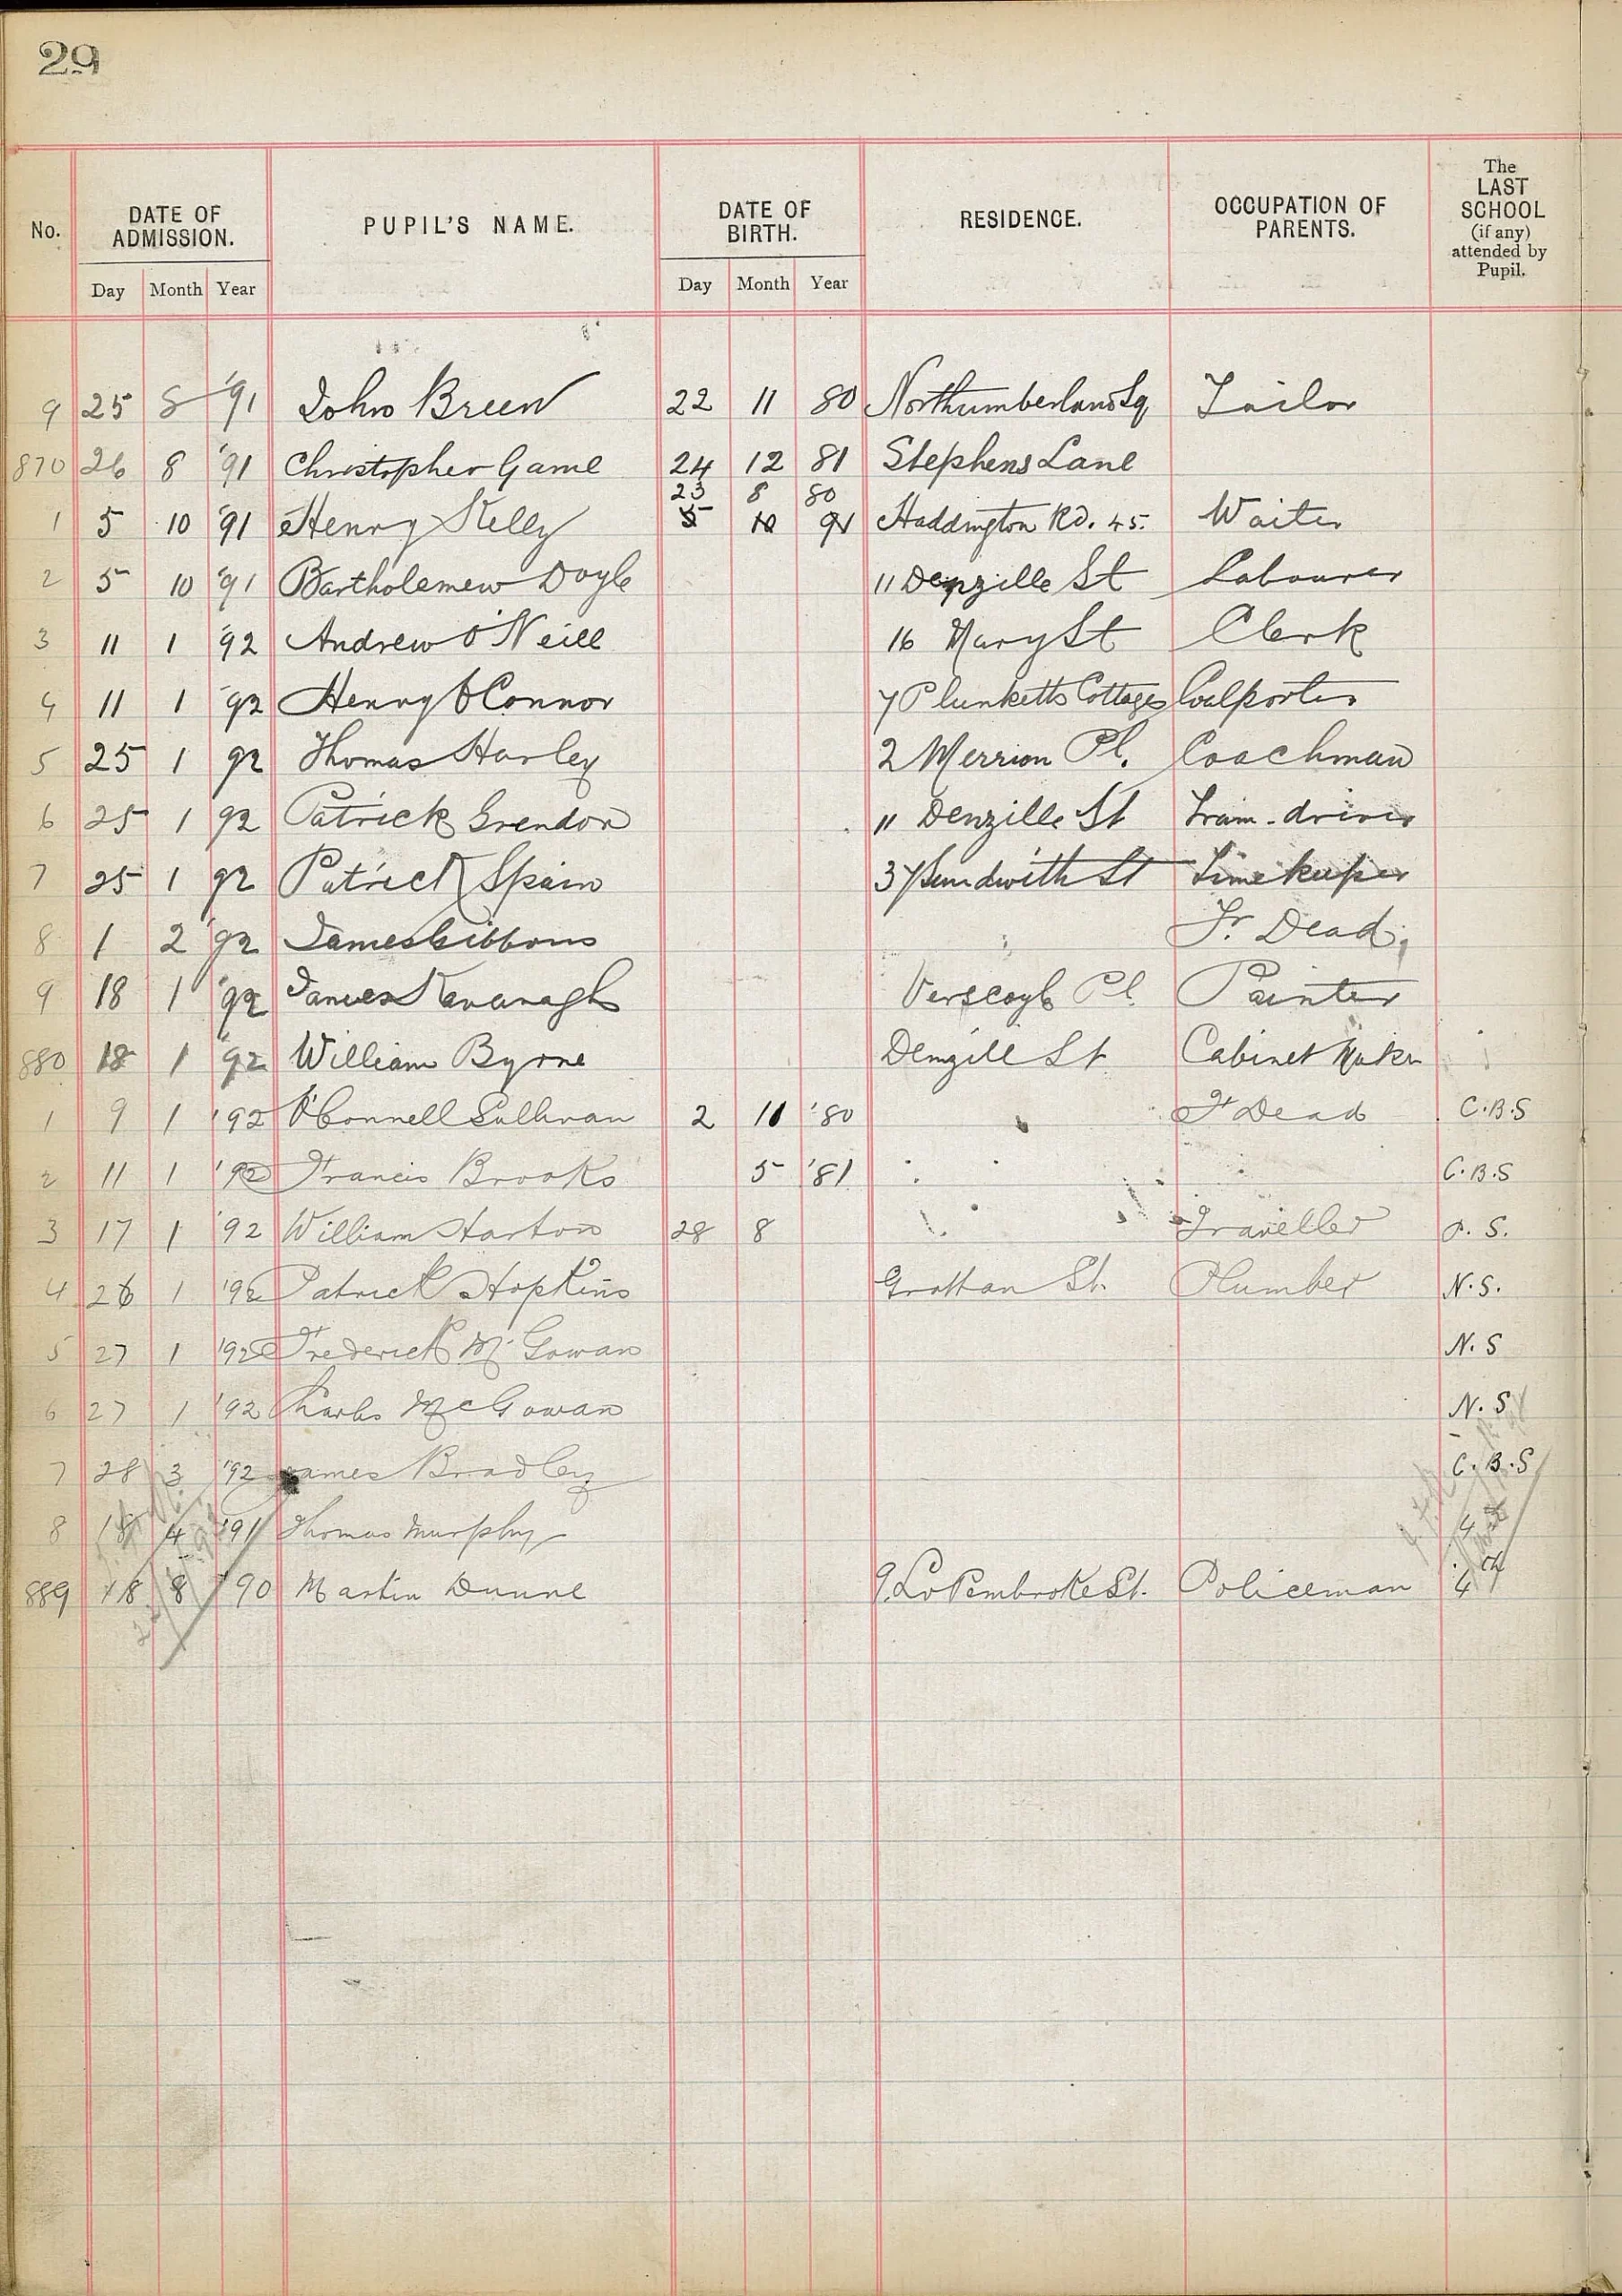 29
No. DATE OF ADMISSION. PUPIL'S NAME. DATE OF BIRTH. RESIDENCE. OCCUPATION OF PARENTS. The LAST SCHOOL (if any) attended by Pupil.
Day Month Year Day Month Year
9 25 8 '91 John Breen 22 11 80 Northumberland Sq Tailor
870 26 8 '91 Christopher Game 24 12 81 Stephens Lane
23 8 80
1 5 10 '91 Henry Kelly 5 10 91 Haddington Rd. 45. Waiter
2 5 10 '91 Bartholemew Doyle 11 Denzille St Labourer
3 11 1 '92 Andrew O'Neill 16 Mary St Clerk
4 11 1 '92 Henry O'Connor 7 Plunketts Cottages Coalporter
5 25 1 92 Thomas Harley 2 Merrion Pl. Coachman
6 25 1 92 Patrick Grendon 11 Denzille St Tram-driver
7 25 1 92 Patrick Spain 37 Sandwith St Timekeeper
8 1 2 '92 James Gibbons Fr. Dead
9 18 1 '92 James Kavanagh Verscoyle Pl. Painter
880 18 1 '92 William Byrne Denzille St Cabinet Maker
1 9 1 '92 O'Connell Sullivan 2 11 '80 Fr Dead C.B.S
2 11 1 '92 Francis Brooks 5 '81 C.B.S
3 17 1 '92 William Harton 28 8 Traveller P. S.
4 26 1 '92 Patrick Hopkins Grattan St. Plumber N.S.
5 27 1 '92 Frederick Mc Gowan N. S
6 27 1 '92 Charles McGowan N. S
7 28 3 '92 James Bradley C. B. S
8 18 4 '91 Thomas Murphy 4th
889 18 8 '90 Martin Dunne 9. Lr Pembroke St. Policeman 4th